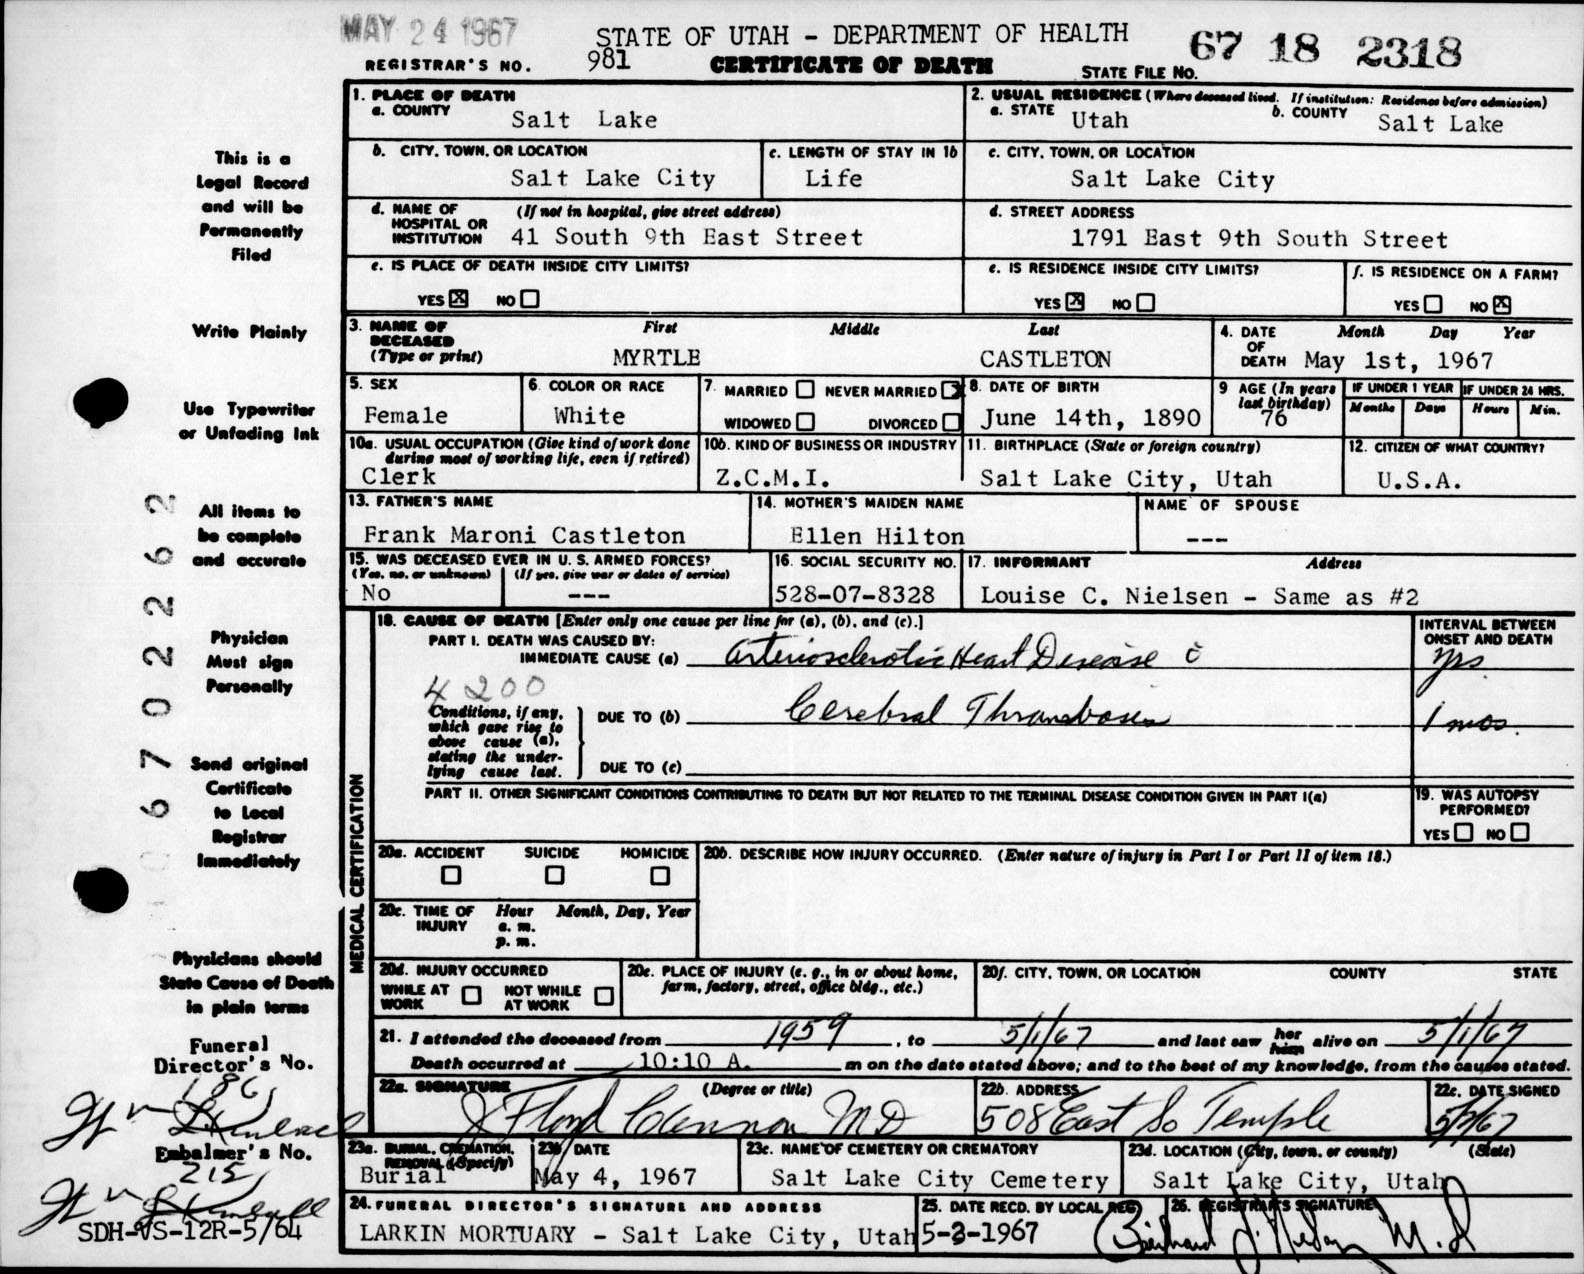 MAY 24 1967
STATE OF UTAH - DEPARTMENT OF HEALTH
67 18 2318
REGISTRAR'S NO. 981
CERTIFICATE OF DEATH
STATE FILE NO.
1. PLACE OF DEATH
a. COUNTY
Salt Lake
2. USUAL RESIDENCE (Where deceased lived. If institution: Residence before admission)
a. STATE Utah
b. COUNTY Salt Lake
b. CITY, TOWN, OR LOCATION
Salt Lake City
c. LENGTH OF STAY IN 1b
Life
c. CITY, TOWN, OR LOCATION
Salt Lake City
d. NAME OF HOSPITAL OR INSTITUTION (If not in hospital, give street address)
41 South 9th East Street
d. STREET ADDRESS
1791 East 9th South Street
e. IS PLACE OF DEATH INSIDE CITY LIMITS?
YES X NO
e. IS RESIDENCE INSIDE CITY LIMITS?
YES X NO
f. IS RESIDENCE ON A FARM?
YES NO X
3. NAME OF DECEASED (Type or print)
First Middle Last
MYRTLE CASTLETON
4. DATE OF DEATH
Month Day Year
May 1st, 1967
5. SEX
Female
6. COLOR OR RACE
White
7. MARRIED NEVER MARRIED X
WIDOWED DIVORCED
8. DATE OF BIRTH
June 14th, 1890
9 AGE (In years last birthday)
76
IF UNDER 1 YEAR
Months Days
IF UNDER 24 HRS.
Hours Min.
10a. USUAL OCCUPATION (Give kind of work done during most of working life, even if retired)
Clerk
10b. KIND OF BUSINESS OR INDUSTRY
Z.C.M.I.
11. BIRTHPLACE (State or foreign country)
Salt Lake City, Utah
12. CITIZEN OF WHAT COUNTRY?
U.S.A.
13. FATHER'S NAME
Frank Maroni Castleton
14. MOTHER'S MAIDEN NAME
Ellen Hilton
NAME OF SPOUSE
---
15. WAS DECEASED EVER IN U. S. ARMED FORCES?
(Yes, no, or unknown) (If yes, give war or dates of service)
No ---
16. SOCIAL SECURITY NO.
528-07-8328
17. INFORMANT Address
Louise C. Nielsen - Same as #2
MEDICAL CERTIFICATION
18. CAUSE OF DEATH [Enter only one cause per line for (a), (b), and (c).]
INTERVAL BETWEEN ONSET AND DEATH
PART I. DEATH WAS CAUSED BY:
IMMEDIATE CAUSE (a) Arteriosclerotic Heart Disease c̄ yrs
4200
Conditions, if any, which gave rise to above cause (a), stating the underlying cause last.
DUE TO (b) Cerebral Thrombosis 1 mos.
DUE TO (c)
PART II. OTHER SIGNIFICANT CONDITIONS CONTRIBUTING TO DEATH BUT NOT RELATED TO THE TERMINAL DISEASE CONDITION GIVEN IN PART I(a)
19. WAS AUTOPSY PERFORMED?
YES NO
20a. ACCIDENT SUICIDE HOMICIDE
20b. DESCRIBE HOW INJURY OCCURRED. (Enter nature of injury in Part I or Part II of item 18.)
20c. TIME OF INJURY Hour Month, Day, Year
a. m.
p. m.
20d. INJURY OCCURRED
WHILE AT WORK NOT WHILE AT WORK
20e. PLACE OF INJURY (e. g., in or about home, farm, factory, street, office bldg., etc.)
20f. CITY, TOWN, OR LOCATION COUNTY STATE
21. I attended the deceased from 1959, to 5/1/67 and last saw her him alive on 5/1/67
Death occurred at 10:10 A. m on the date stated above; and to the best of my knowledge, from the causes stated.
22a. SIGNATURE (Degree or title)
J Floyd Cannon MD
22b. ADDRESS
508 East So Temple
22c. DATE SIGNED
5/2/67
23a. BURIAL, CREMATION, REMOVAL (Specify)
Burial
23b DATE
May 4, 1967
23c. NAME OF CEMETERY OR CREMATORY
Salt Lake City Cemetery
23d. LOCATION (City, town, or county) (State)
Salt Lake City, Utah
24. FUNERAL DIRECTOR'S SIGNATURE AND ADDRESS
LARKIN MORTUARY - Salt Lake City, Utah
25. DATE RECD. BY LOCAL REG.
5-3-1967
26. REGISTRAR'S SIGNATURE
M.D
This is a
Legal Record
and will be
Permanently
Filed
Write Plainly
Use Typewriter
or Unfading Ink
All items to
be complete
and accurate
Physician
Must sign
Personally
Send original
Certificate
to Local
Registrar
Immediately
67022262
Physicians should
State Cause of Death
in plain terms
Funeral
Director's No.
186
Embalmer's No.
215
SDH-VS-12R-5/64